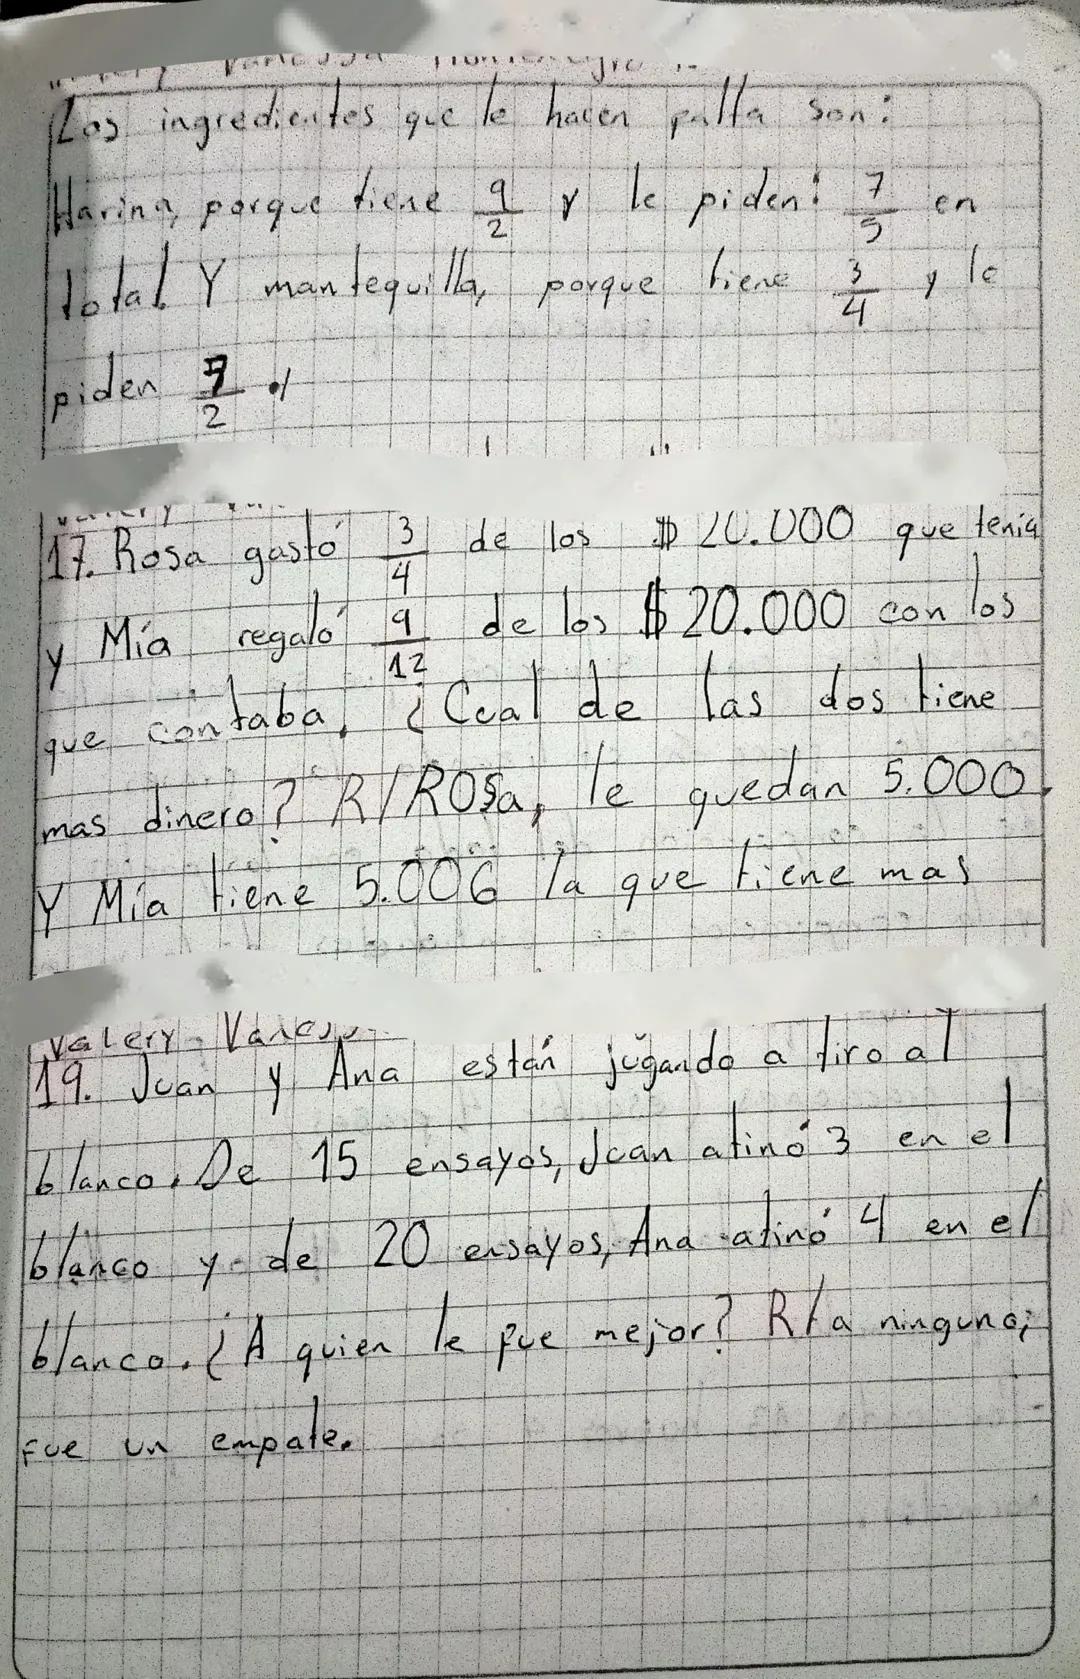 Los ingredientes que le hacen falta son:
Harina, porque tiene 9/2 y le piden: 7/5 en
total. Y mantequilla, porque tiene 3/4 y le
piden 7/2
17. Rosa gastó 3/4 de los $20.000 que tenía
y Mía regaló 9/12 de los $20.000 con los
que contaba. ¿Cual de las dos tiene
mas dinero? R/ROSa, le quedan 5.000.
Y Mía tiene 5.006 la que tiene mas
Valery Vaness
19. Juan y Ana están jugando a tiro al
blanco. De 15 ensayos, Juan atinó 3 en el
blanco y de 20 ensayos, Ana atinó 4 en el
blanco. ¿A quien le fue mejor? R/a ninguno;
Fue un empate.